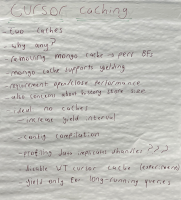 CURSOR CACHING
- two caches
- why any?
- removing mongo cache is perf BFs
- mongo cache supports yielding
- requirement open/close performance
- also concern about history store size
- ideal no caches
- increase yield interval
- config compilation
- profiling Java implicates dhandles ???
- disable WT cursor cache (experiment)
- yield only for long-running queries